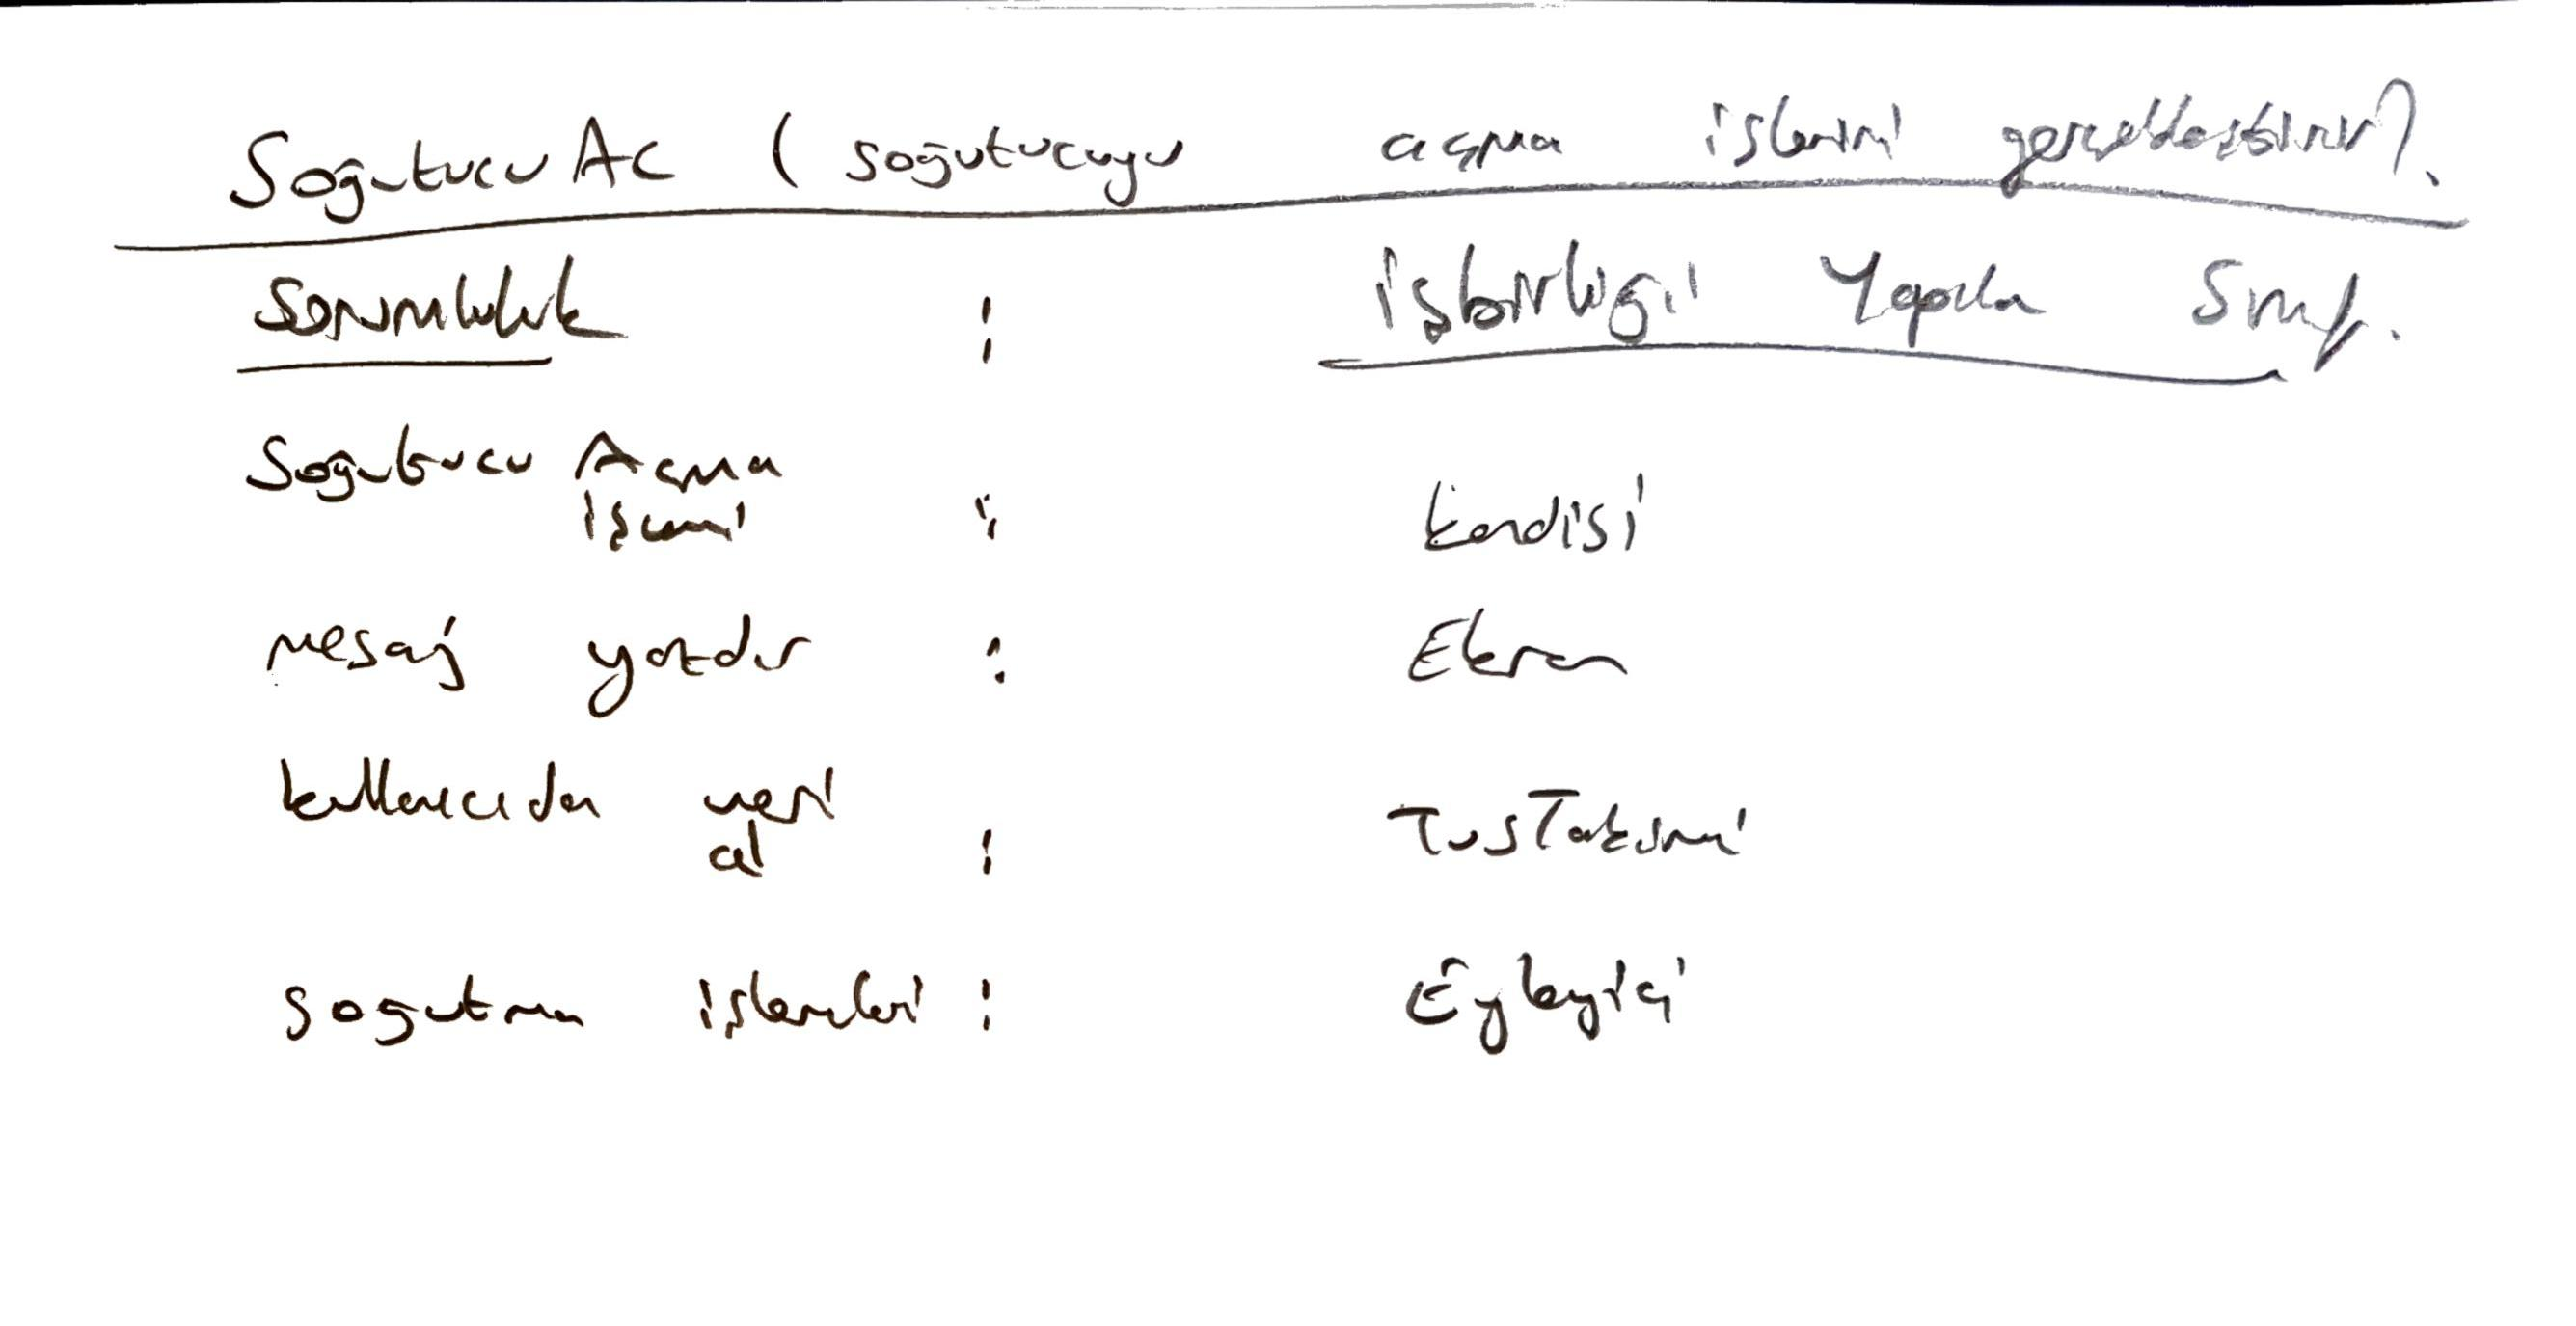 SoğutucuAc (soğutucuyu açma işlemini gerçekleştirir).
Sorumluluk : işbirliği Yapıla Sınıf.
Soğutucu Açma
işlemi : kendisi
mesaj yazdır : Ekran
kullanıcıdan veri
al : TusTakımı
sogutma işlemleri : Eyleyici